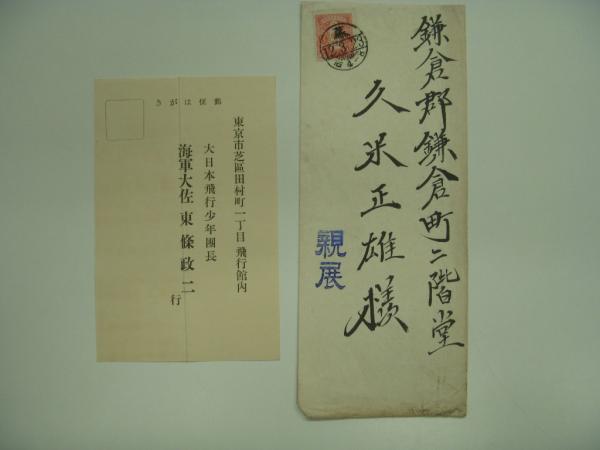 郵便はがき
東京市芝區田村町一丁目 飛行館内
大日本飛行少年團長
海軍大佐 東條政二 行
鎌倉郡鎌倉町二階堂
久米正雄様
親展